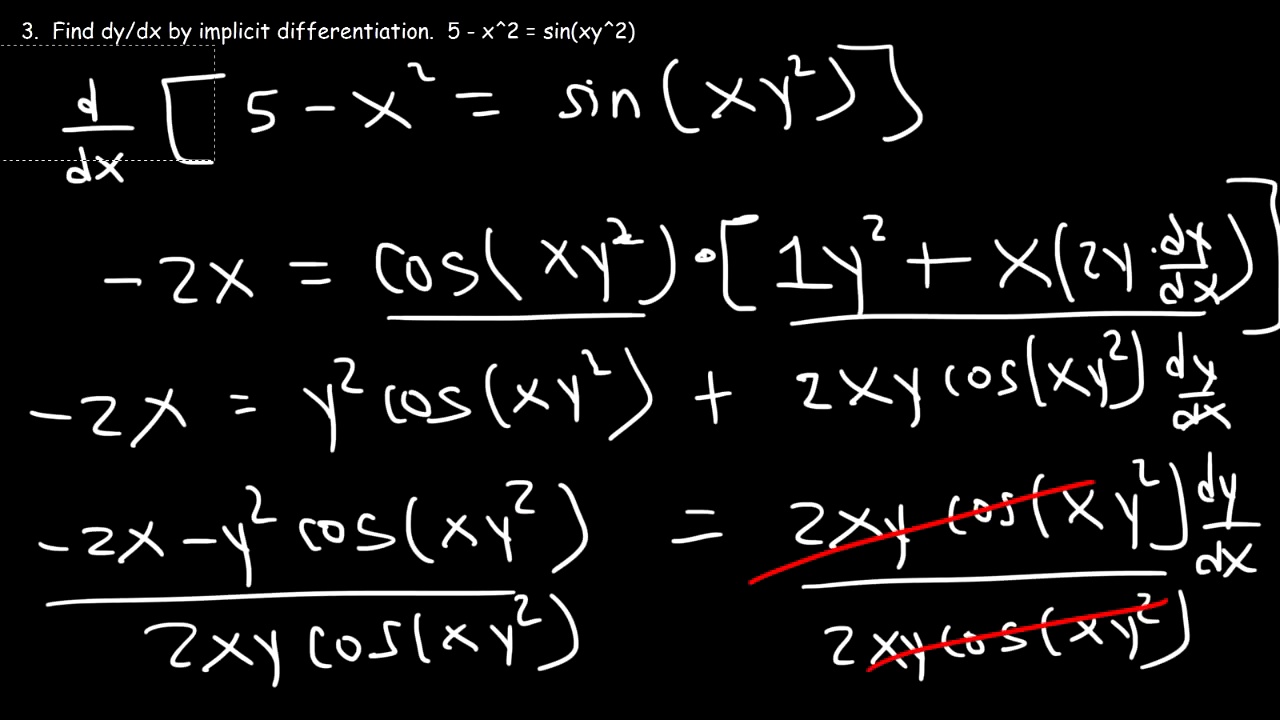 3. Find dy/dx by implicit differentiation. 5 - x^2 = sin(xy^2)
d/dx [5 - x² = sin(xy²)]
-2x = cos(xy²) · [1y² + x(2y · dx/dx)]
-2x = y² cos(xy²) + 2xy cos(xy²) dy/dx
-2x - y² cos(xy²) = 2xy cos(xy²) dy/dx
2xy cos(xy²) 2xy cos(xy²)